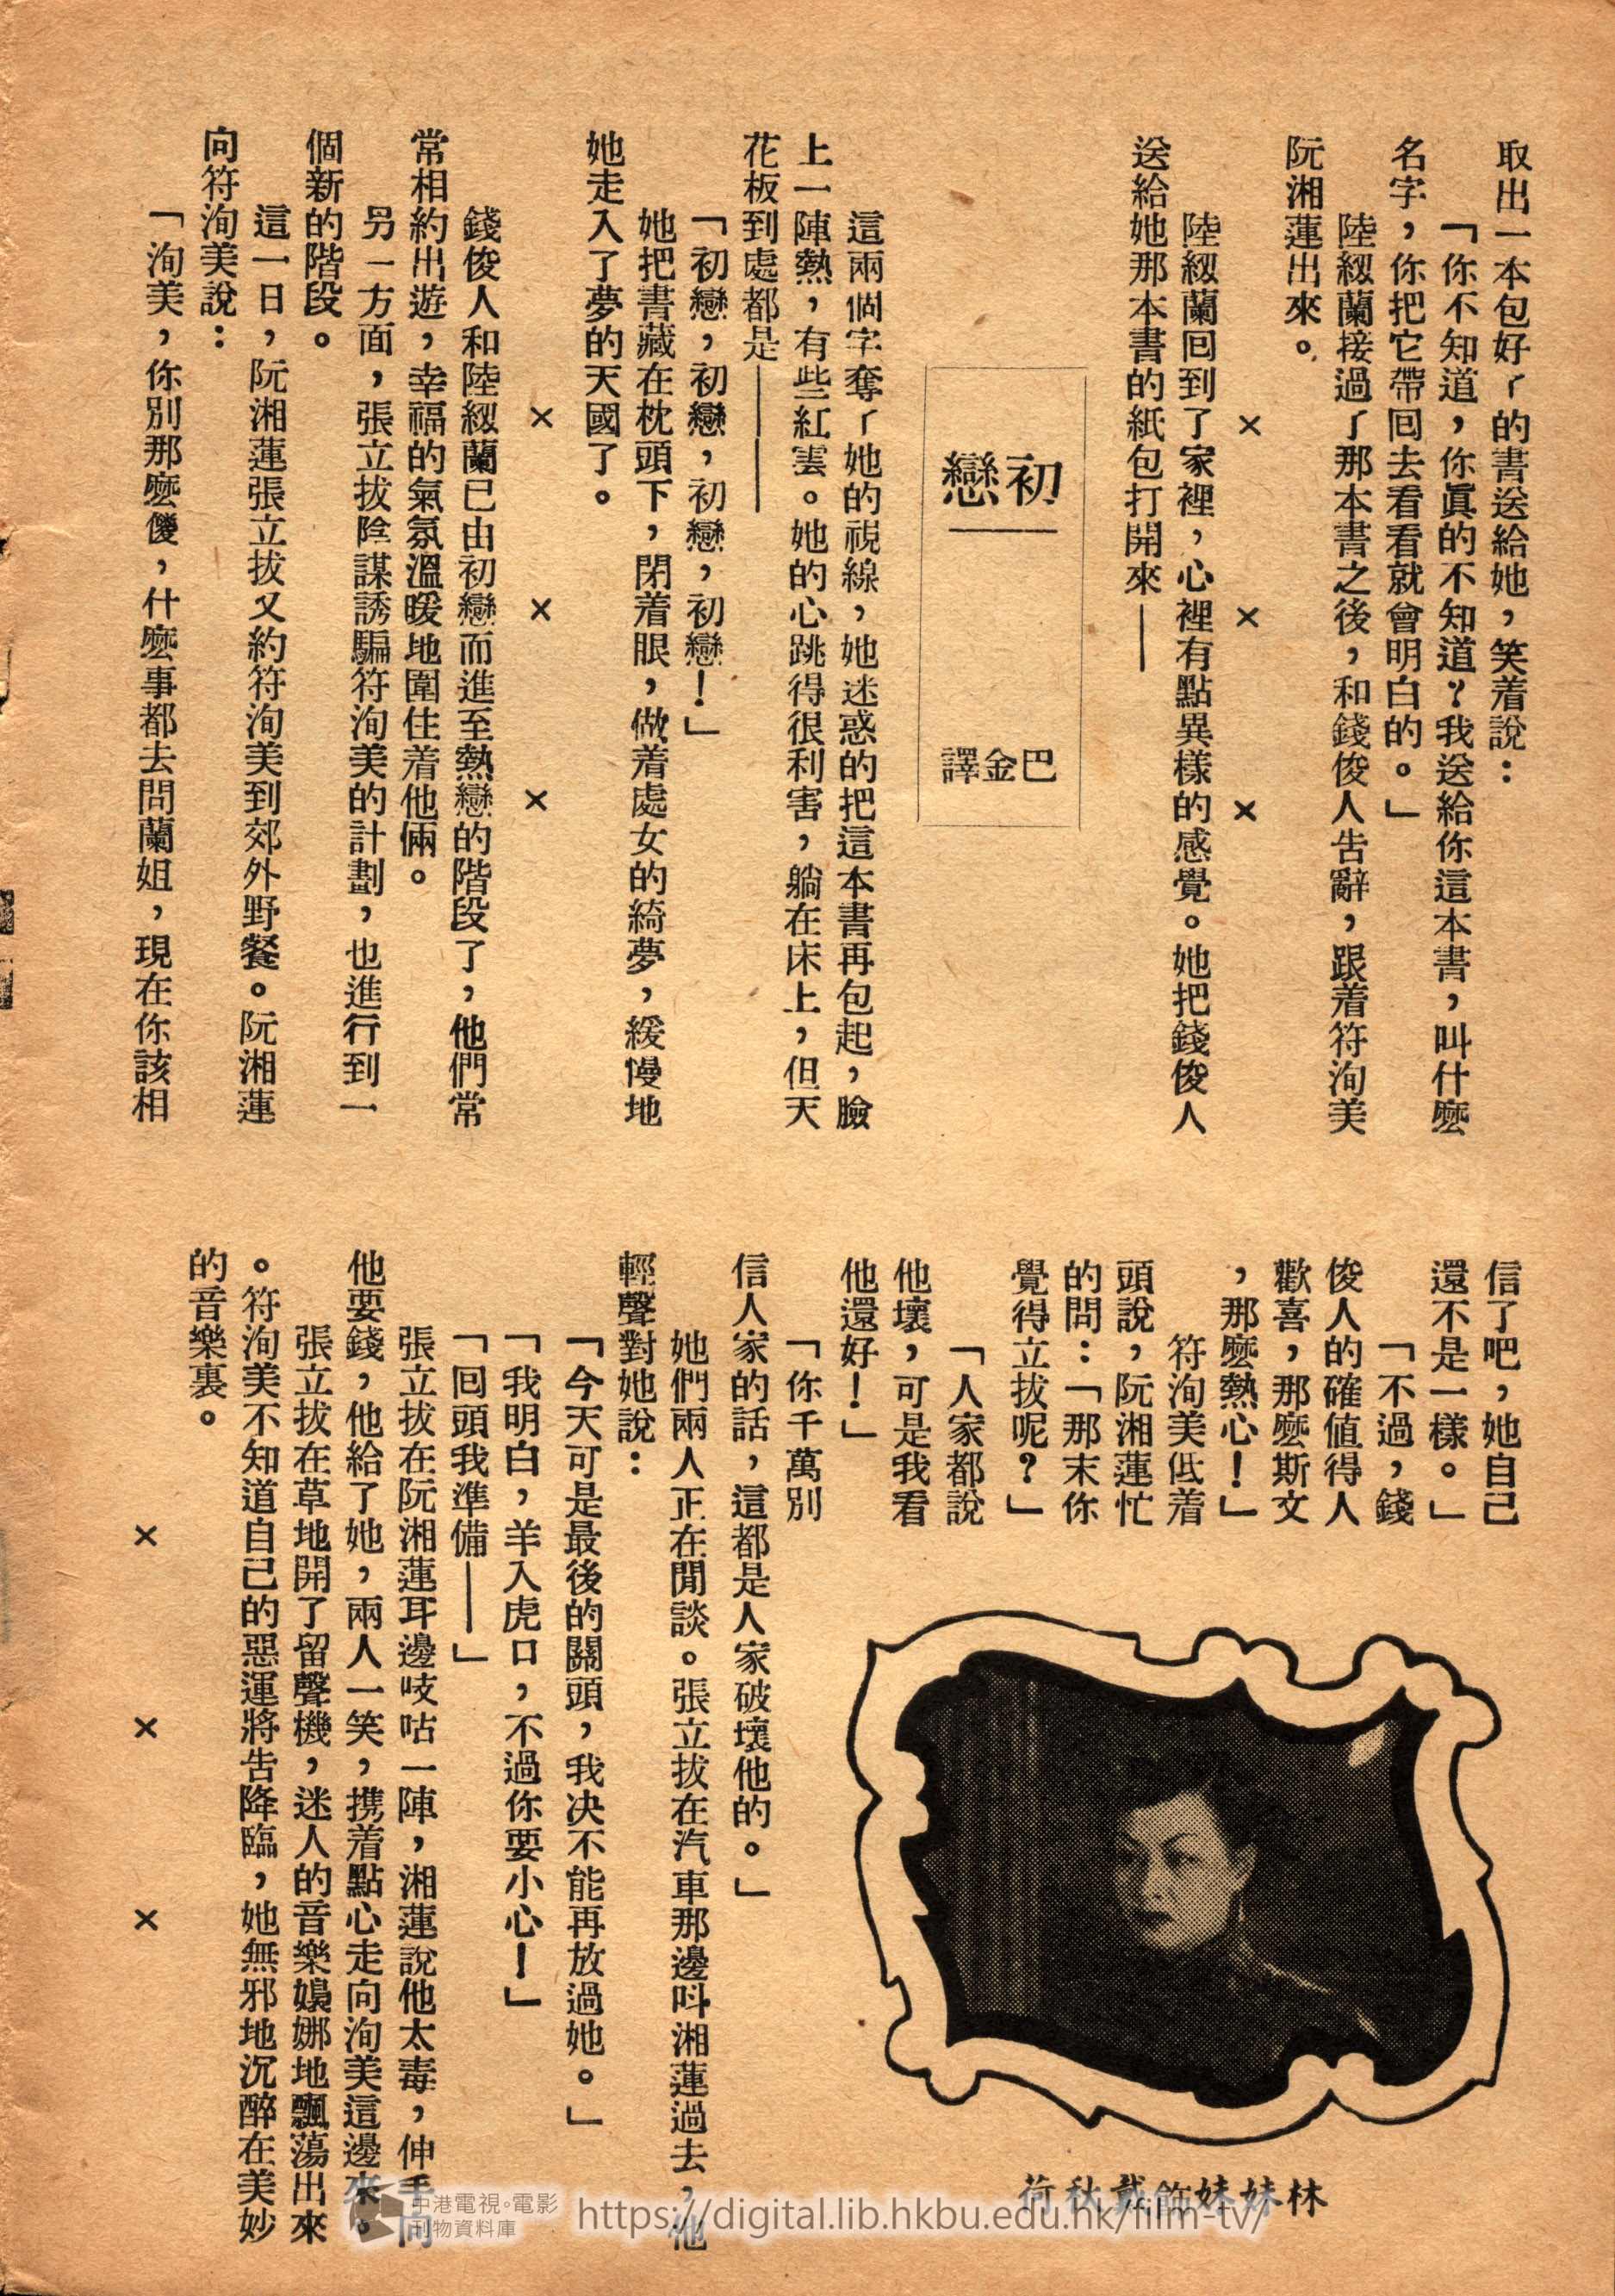 取出一本包好了的書送給她，笑着說：
「你不知道，你眞的不知道？我送給你這本書，叫什麼
名字，你把它帶回去看看就會明白的。」
陸紉蘭接過了那本書之後，和錢俊人告辭，跟着符洵美
阮湘蓮出來。
× × ×
陸紉蘭回到了家裡，心裡有點異樣的感覺。她把錢俊人
送給她那本書的紙包打開來——
初戀——
巴金譯
這兩個字奪了她的視線，她迷惑的把這本書再包起，臉
上一陣熱，有些紅雲。她的心跳得很利害，躺在床上，但天
花板到處都是————
「初戀，初戀，初戀，初戀！」
她把書藏在枕頭下，閉着眼，做着處女的綺夢，緩慢地
她走入了夢的天國了。
× × ×
錢俊人和陸紉蘭已由初戀而進至熱戀的階段了，他們常
常相約出遊，幸福的氣氛溫暖地圍住着他倆。
另一方面，張立拔陰謀誘騙符洵美的計劃，也進行到一
個新的階段。
這一日，阮湘蓮張立拔又約符洵美到郊外野餐。阮湘蓮
向符洵美說：
「洵美，你別那麼儍，什麼事都去問蘭姐，現在你該相
信了吧，她自己
還不是一樣。」
「不過，錢
俊人的確值得人
歡喜，那麼斯文
，那麼熱心！」
符洵美低着
頭說，阮湘蓮忙
的問：「那末你
覺得立拔呢？」
「人家都說
他壞，可是我看
他還好！」
「你千萬別
信人家的話，這都是人家破壞他的。」
她們兩人正在閒談。張立拔在汽車那邊呌湘蓮過去，他
輕聲對她說：
「今天可是最後的關頭，我决不能再放過她。」
「我明白，羊入虎口，不過你要小心！」
「回頭我準備——」
張立拔在阮湘蓮耳邊吱咕一陣，湘蓮說他太毒，伸手向
他要錢，他給了她，兩人一笑，携着點心走向洵美這邊來。
張立拔在草地開了留聲機，迷人的音樂嬝娜地飄蕩出來
。符洵美不知道自己的惡運將告降臨，她無邪地沉醉在美妙
的音樂裏。
× × ×
林妹妹飾戴秋荷
中港電視。電影
刊物資料庫
https://digital.lib.hkbu.edu.hk/film-tv/